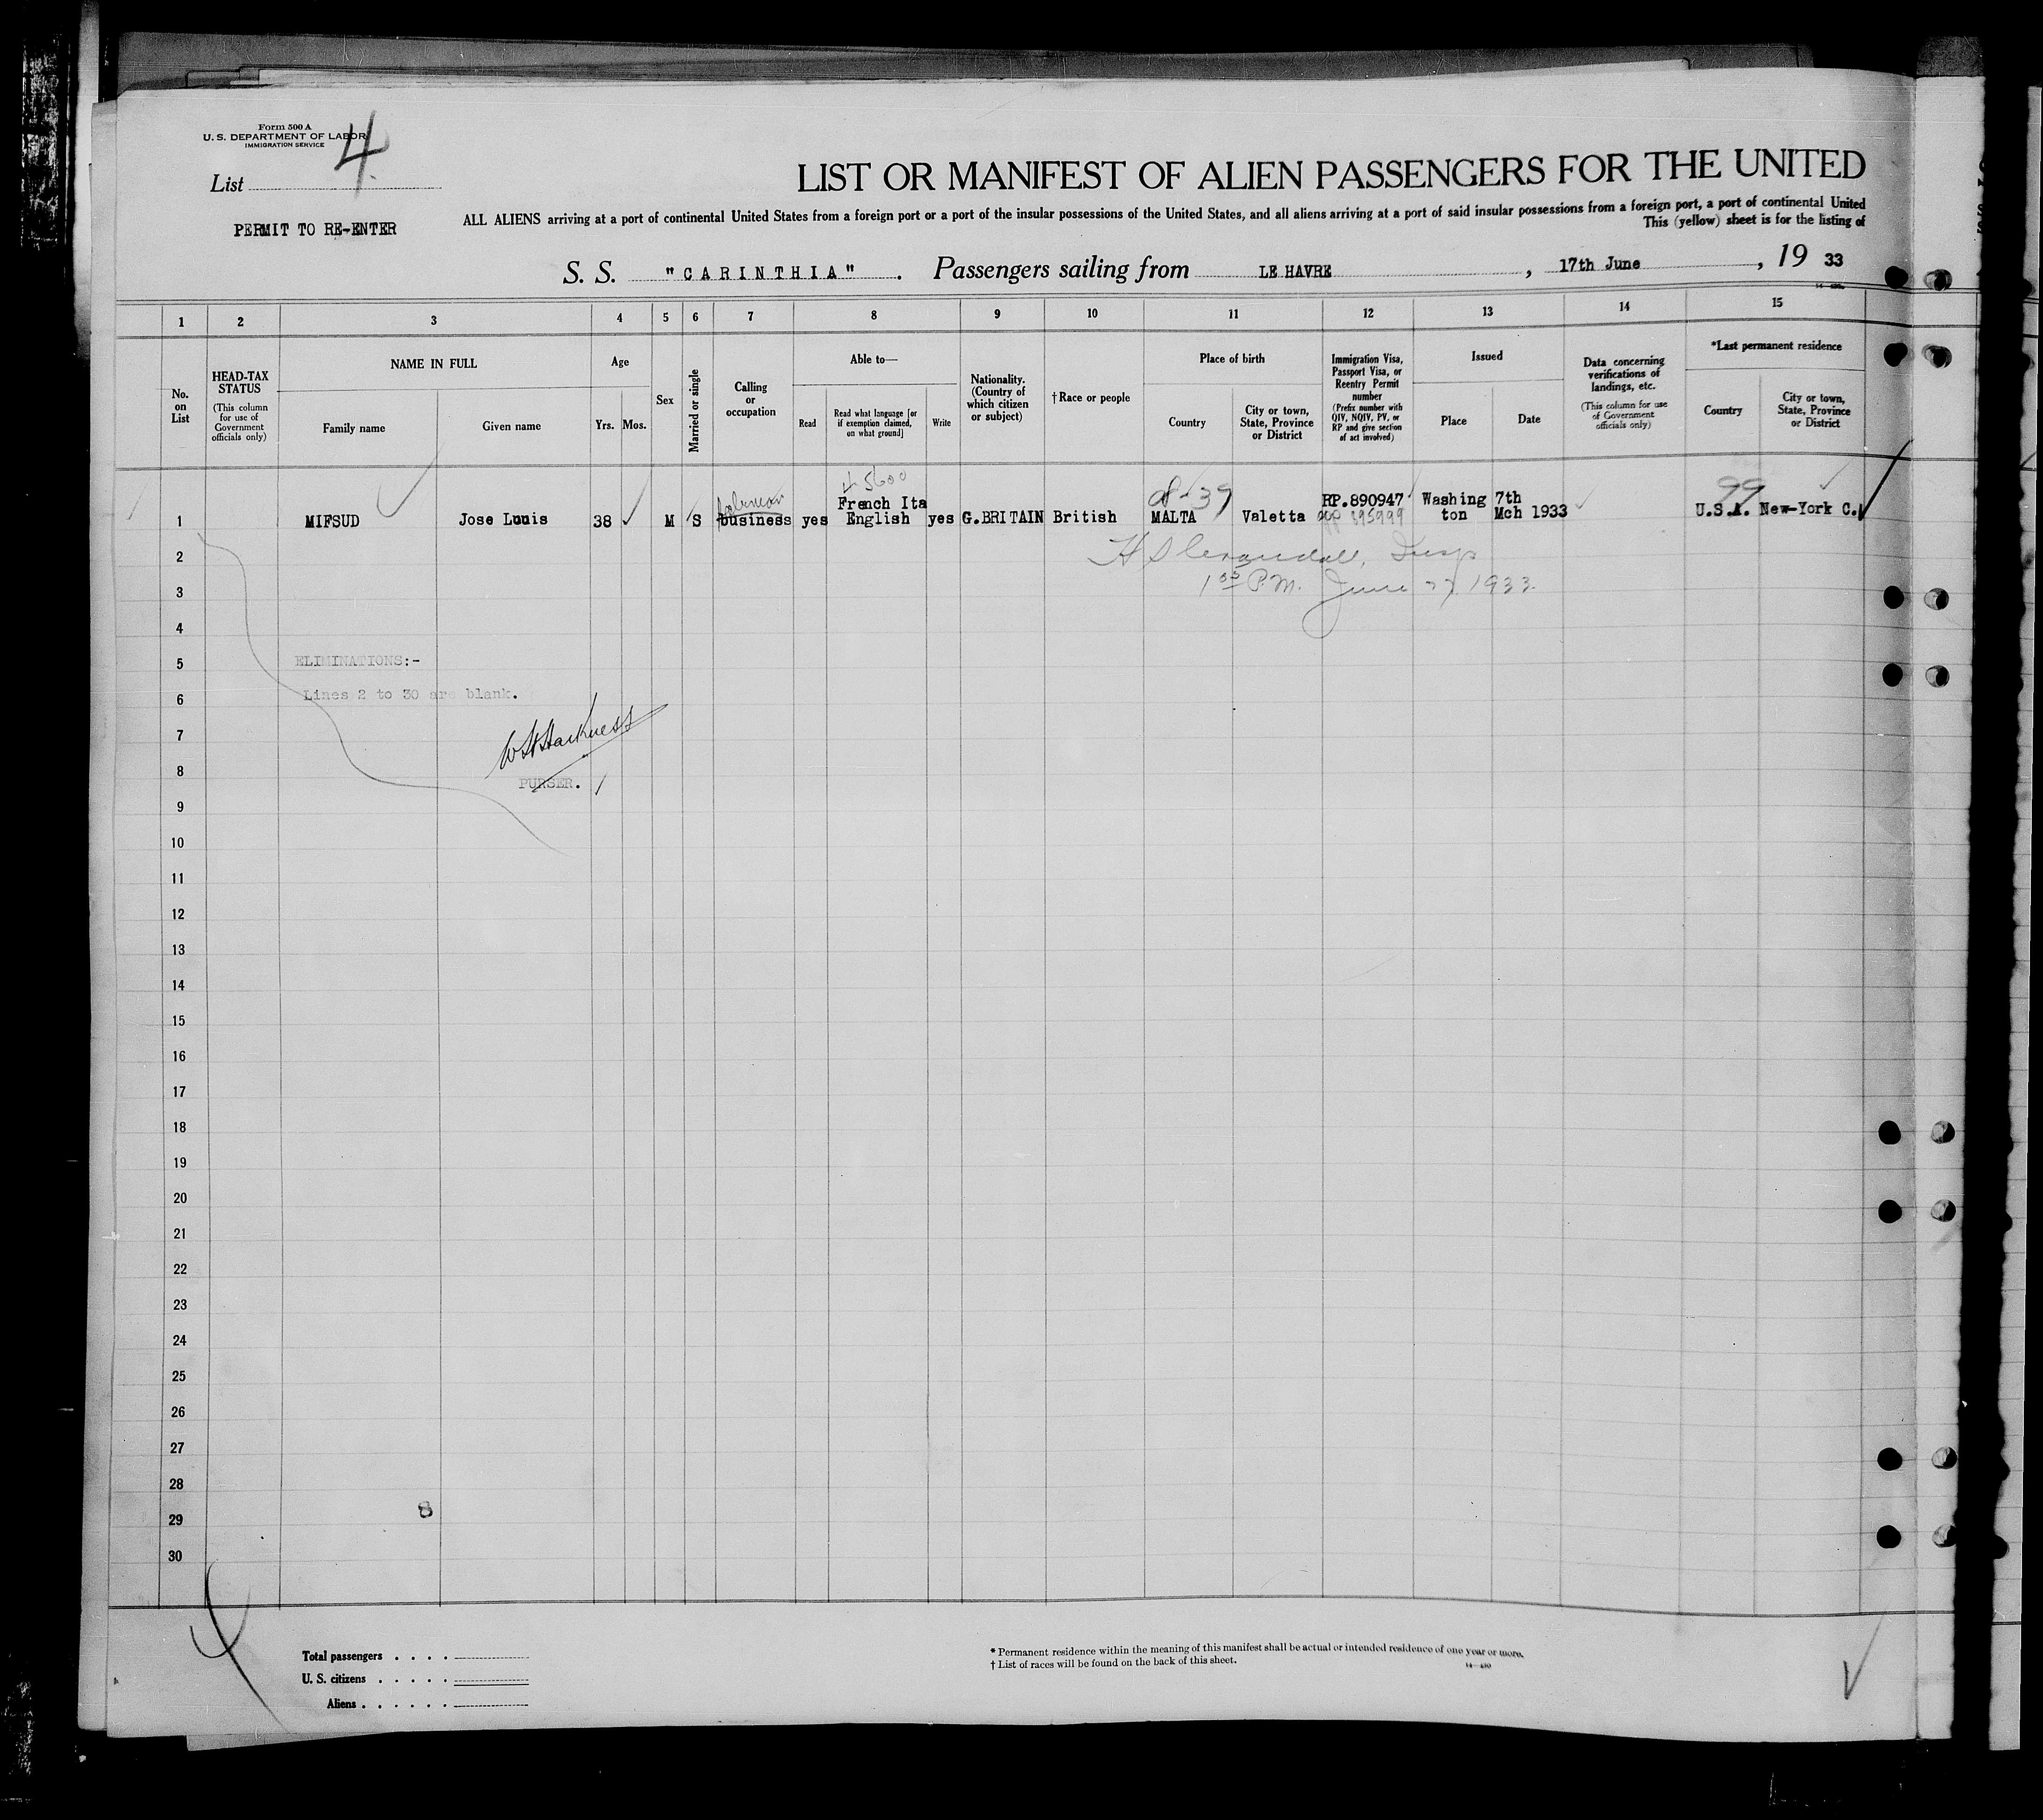 Form 500 A
U. S. DEPARTMENT OF LABOR
IMMIGRATION SERVICE
List 4
PERMIT TO RE-ENTER
LIST OR MANIFEST OF ALIEN PASSENGERS FOR THE UNITED
ALL ALIENS arriving at a port of continental United States from a foreign port or a port of the insular possessions of the United States, and all aliens arriving at a port of said insular possessions from a foreign port, a port of continental United
This (yellow) sheet is for the listing of
S. S. "CARINTHIA" . Passengers sailing from LE HAVRE , 17th June , 19 33
1 2 3 4 5 6 7 8 9 10 11 12 13 14 15
No. on List
HEAD-TAX STATUS
(This column for use of Government officials only)
NAME IN FULL
Family name
Given name
Age
Yrs. Mos.
Sex
Married or single
Calling or occupation
Able to—
Read
Read what language [or if exemption claimed, on what ground]
Write
Nationality. (Country of which citizen or subject)
† Race or people
Place of birth
Country
City or town, State, Province or District
Immigration Visa, Passport Visa, or Reentry Permit number
(Prefix number with QIV, NQIV, PV, or RP and give section of act involved)
Issued
Place
Date
Data concerning verifications of landings, etc.
(This column for use of Government officials only)
*Last permanent residence
Country
City or town, State, Province or District
4-5600
8-39
99
1 MIFSUD Jose Louis 38 M S business yes French Ita English yes G.BRITAIN British MALTA Valetta RP.890947 Washington 7th Mch 1933 U.S.A. New-York C.
895999
2
Insp
3
P.M. June 27 1933
4
5
ELIMINATIONS:-
6
Lines 2 to 30 are blank.
7
W H Harkness
8
PURSER.
9
10
11
12
13
14
15
16
17
18
19
20
21
22
23
24
25
26
27
28
8
29
30
Total passengers . . . .
U. S. citizens . . . . .
Aliens . . . . . .
* Permanent residence within the meaning of this manifest shall be actual or intended residence of one year or more.
† List of races will be found on the back of this sheet.
14—430